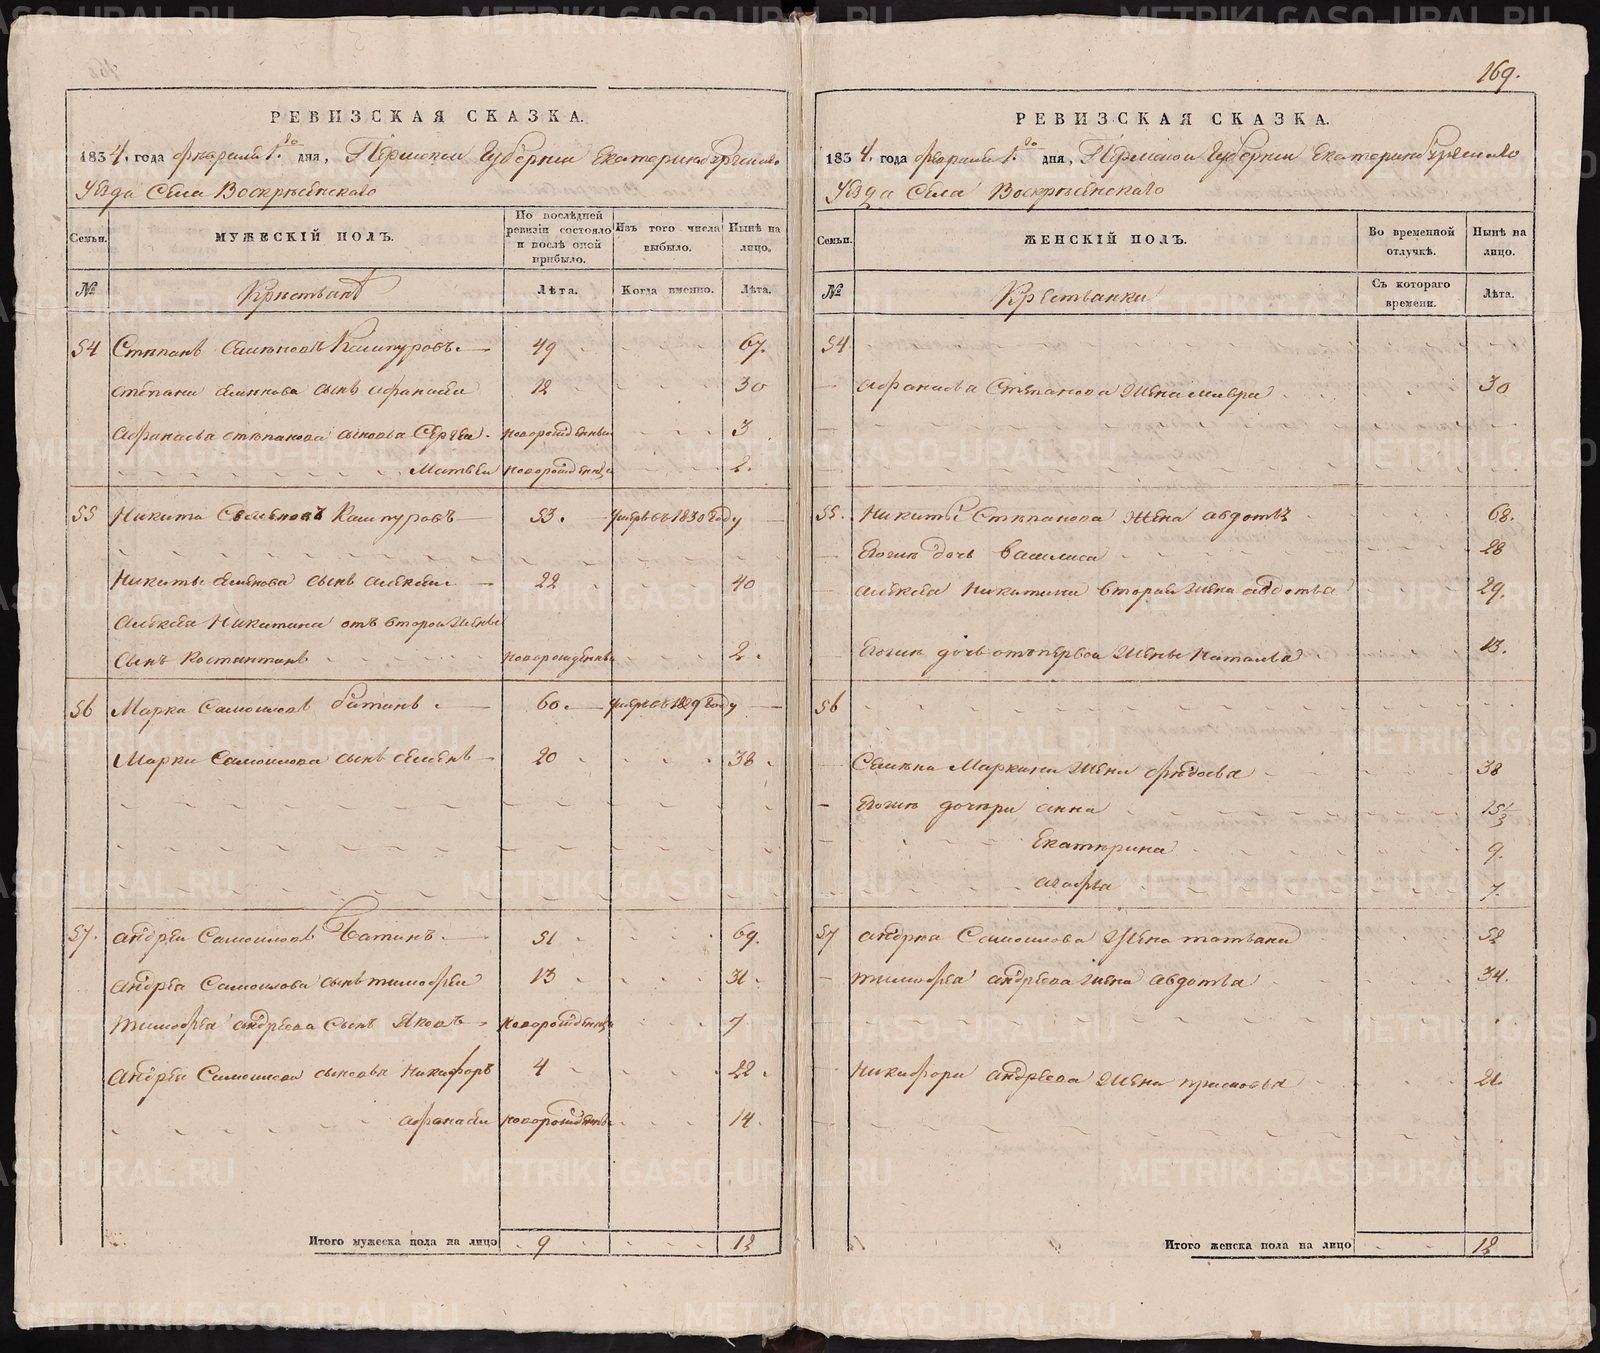 169.
РЕВИЗСКАЯ СКАЗКА.
1834. года февраля 1.го дня, Пермской Губернии Екатеринбургскаго
Уезда Села Воскресенскаго
Семьи.
МУЖЕСКІЙ ПОЛЪ.
По послѣдней ревизіи состояло и послѣ оной прибыло.
Изъ того числа выбыло.
Нынѣ на лицо.
№
Крестьянѣ
Лѣта.
Когда именно.
Лѣта.
54 Степанъ Семеновъ Кашпуровъ. 49 67.
Степана Семенова сынъ Афанасеи 12 30
Афанасья Степанова сыновья Сергеи. новорожденныи 3
Матвеи новорожденны 2.
55 Никита Семеновъ Кашпуровъ 53. умре въ 1830 году
Никиты Семенова сынъ Алексеи 22 40
Алексея Никитина отъ второй жены
сынъ Костентинъ новорожденны 2.
56 Марка Самоиловъ Батинъ. 60. умре въ 1829 году
Марки Самоилова сынъ Семенъ 20 38.
57. Андреи Самоиловъ Батинъ. 51 69.
Андрея Самоилова сынъ Тимофеи 13 31.
Тимофея Андреева сынъ Яковъ новорожденны 7
Андрея Самоилова сыновья Никифоръ 4 22.
Афанасеи новорожденны 14.
Итого мужеска пола на лицо 9 12
РЕВИЗСКАЯ СКАЗКА.
1834. года февраля 1.го дня, Пермской Губернии Екатеринбургскаго
Уезда Села Воскресенскаго
Семьи.
ЖЕНСКІЙ ПОЛЪ.
Во временной отлучкѣ.
Нынѣ на лицо.
№
Крестьянки
Съ котораго времени.
Лѣта.
54
Афанасья Степанова жена Мавра 30
55. Никиты Степанова жена Авдотья 68.
Егоже дочь Василиса 28
Алексея Никитина вторая жена Авдотья 29.
Егоже дочь отъ первой жены Наталья 13.
56
Семена Маркина жена Федосья 38
Егоже дочери Анна 15 1/3
Екатерина 9.
Агафья 7.
57 Андрея Самоилова жена Татьяна 52
Тимофея Андреева жена Авдотья 34.
Никифора Андреева жена Прасковья 21.
Итого женска пола на лицо 12
METRIKI.GASO-URAL.RU